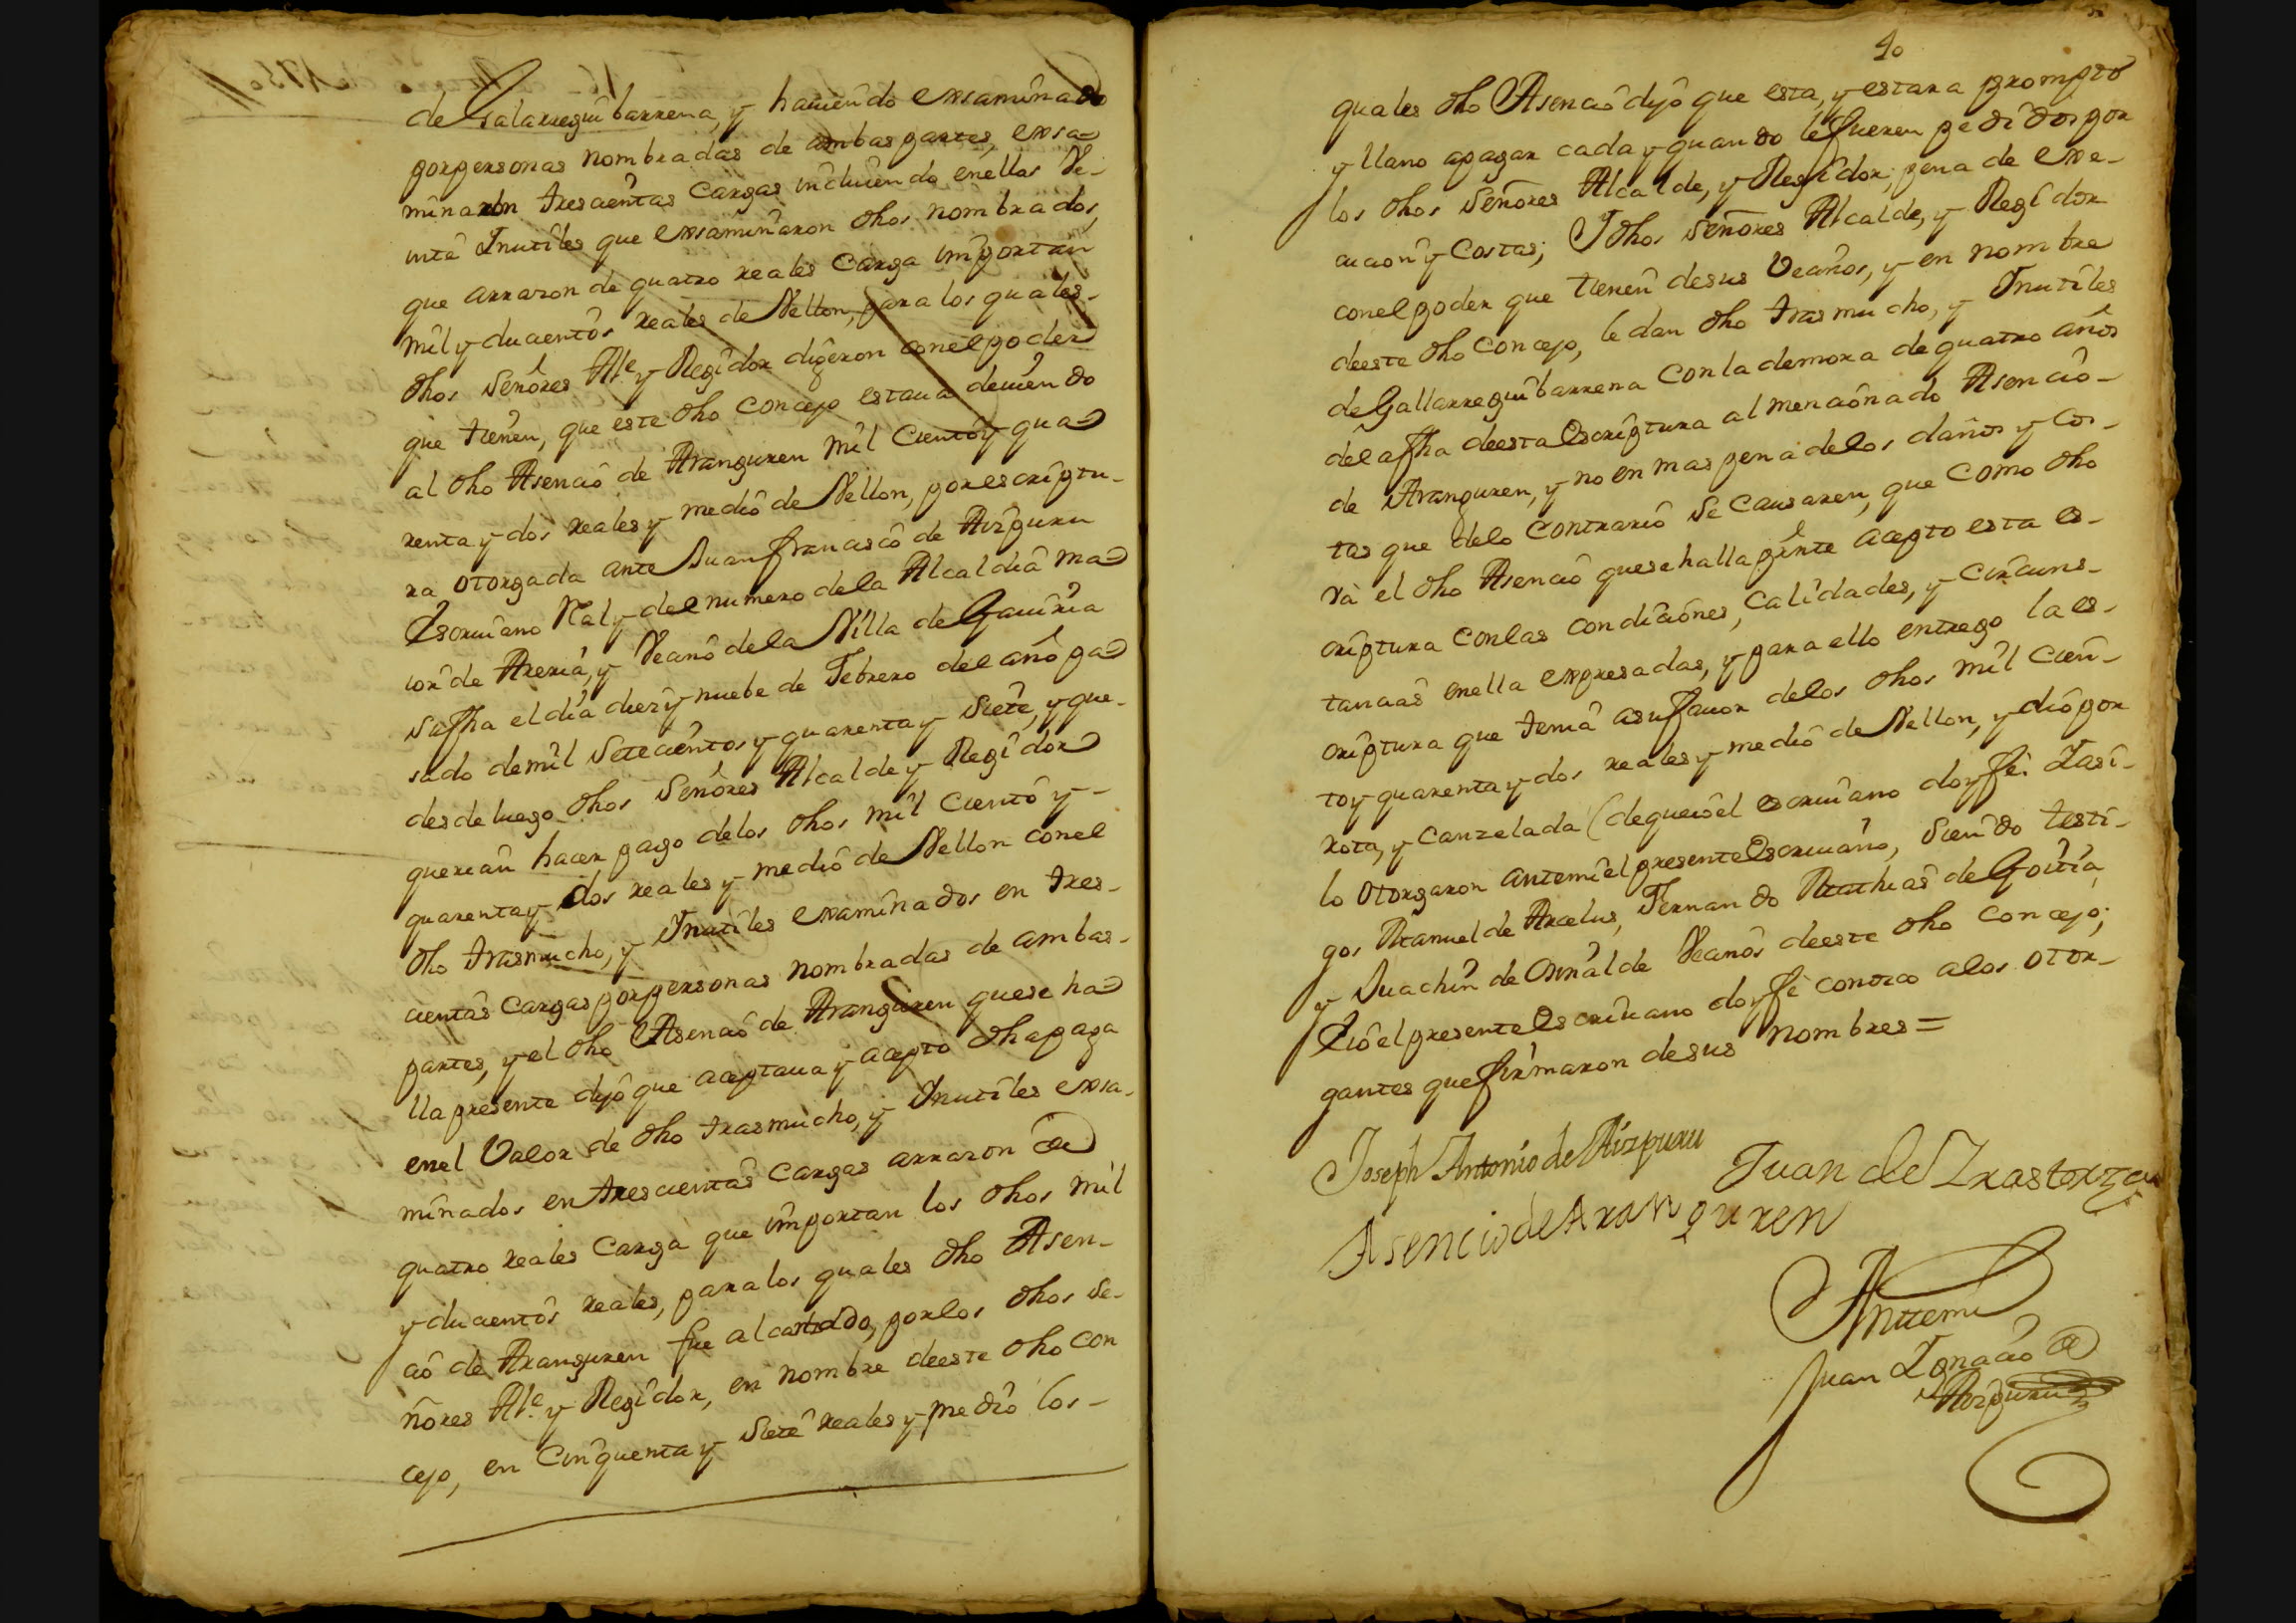 de Galarregui barrena, y haviendo exsaminado
por personas nombradas de ambas partes, exsa=
minaron trescientas cargas incluiendo en ellas ve-
inte Inutiles que exsaminaron dhos nombrados,
que arrazon de quatro reales carga importan
mil y ducientos reales de Vellon, para los quales-
dhos Señores Alc.e y Regidor digeron con el poder
que tienen, que este dho Concejo estava deviendo
al dho Asencio de Aranguren mil Ciento y qua
renta y dos reales y medio de Vellon, por escriptu-
ra otorgada ante Juan francisco de Aizpuru
Escrivano Ral y del numero de la Alcaldia ma
ior de Areria, y Vecino de la Villa de Gaviria
su fha el dia diez y nuebe de Febrero del año pa
sado de mil Setecientos y quarenta y Siete, y que-
desde luego dhos Señores Alcalde y Regidor
querian hacer pago de los dhos mil Ciento y-
quarenta y dos reales y medio de Vellon con el
dho trasmucho, y Inutiles examinados en tres-
cientas Cargas por personas nombradas de ambas-
partes, y el dho Asencio de Aranguren que se ha
lla presente dijo que aceptava y acepto dha paga
en el Valor de dho trasmucho, y Inutiles exsa-
minados en trescientas Cargas arrazon de
quatro reales Carga que importan los dhos mil
y ducientos reales, para los quales dho Asen-
cio de Aranguren fue alcanzado, por los dhos Se-
ñores Alc.e y Regidor, en nombre de este dho Con
cejo, en Cinquenta y Siete reales y medio los-
40
quales dho Asencio dijo que esta, y estara prompto
y llano apagar cada y quando le fueren pedidos por
los dhos Señores Alcalde, y Regidor, pena de exe-
cucion y Costas; I dhos Señores Alcalde, y Regidor
con el poder que tienen de sus Vecinos, y en nombre
de este dho Concejo, le dan dho trasmucho, y Inutiles
de Gallarregui barrena con la demora de quatro años
de la fha de esta Escriptura al mencionado Asencio-
de Aranguren, y no en mas pena de los daños y Cos-
tas que delo Contrario Se Causaren, que como dho
va el dho Asencio que se halla pnte acepto esta es-
criptura con las condiciones, Calidades, y Circuns-
tancias en ella expresadas, y para ello entrego la es-
criptura que tenia a su favor de los dhos mil Cien-
to y quarenta y dos reales y medio de Vellon, y dio por
rota, y Canzelada (de que io el escrivano doy fe. I asi-
lo Otorgaron ante mi el presente Escrivano, Siendo testi-
gos Manuel de Arcelus, Fernando Mathias de Goitia,
y Juachin de Osinalde Vecinos de este dho Concejo;
E io el presente Escrivano doy fe conozco a los otor-
gantes que firmaron de sus nombres=
Joseph Antonio de Aizpuru
Juan de Irastorza
Asencio de Aranguren
Antemi
Juan Ignacio de
Aizpuru